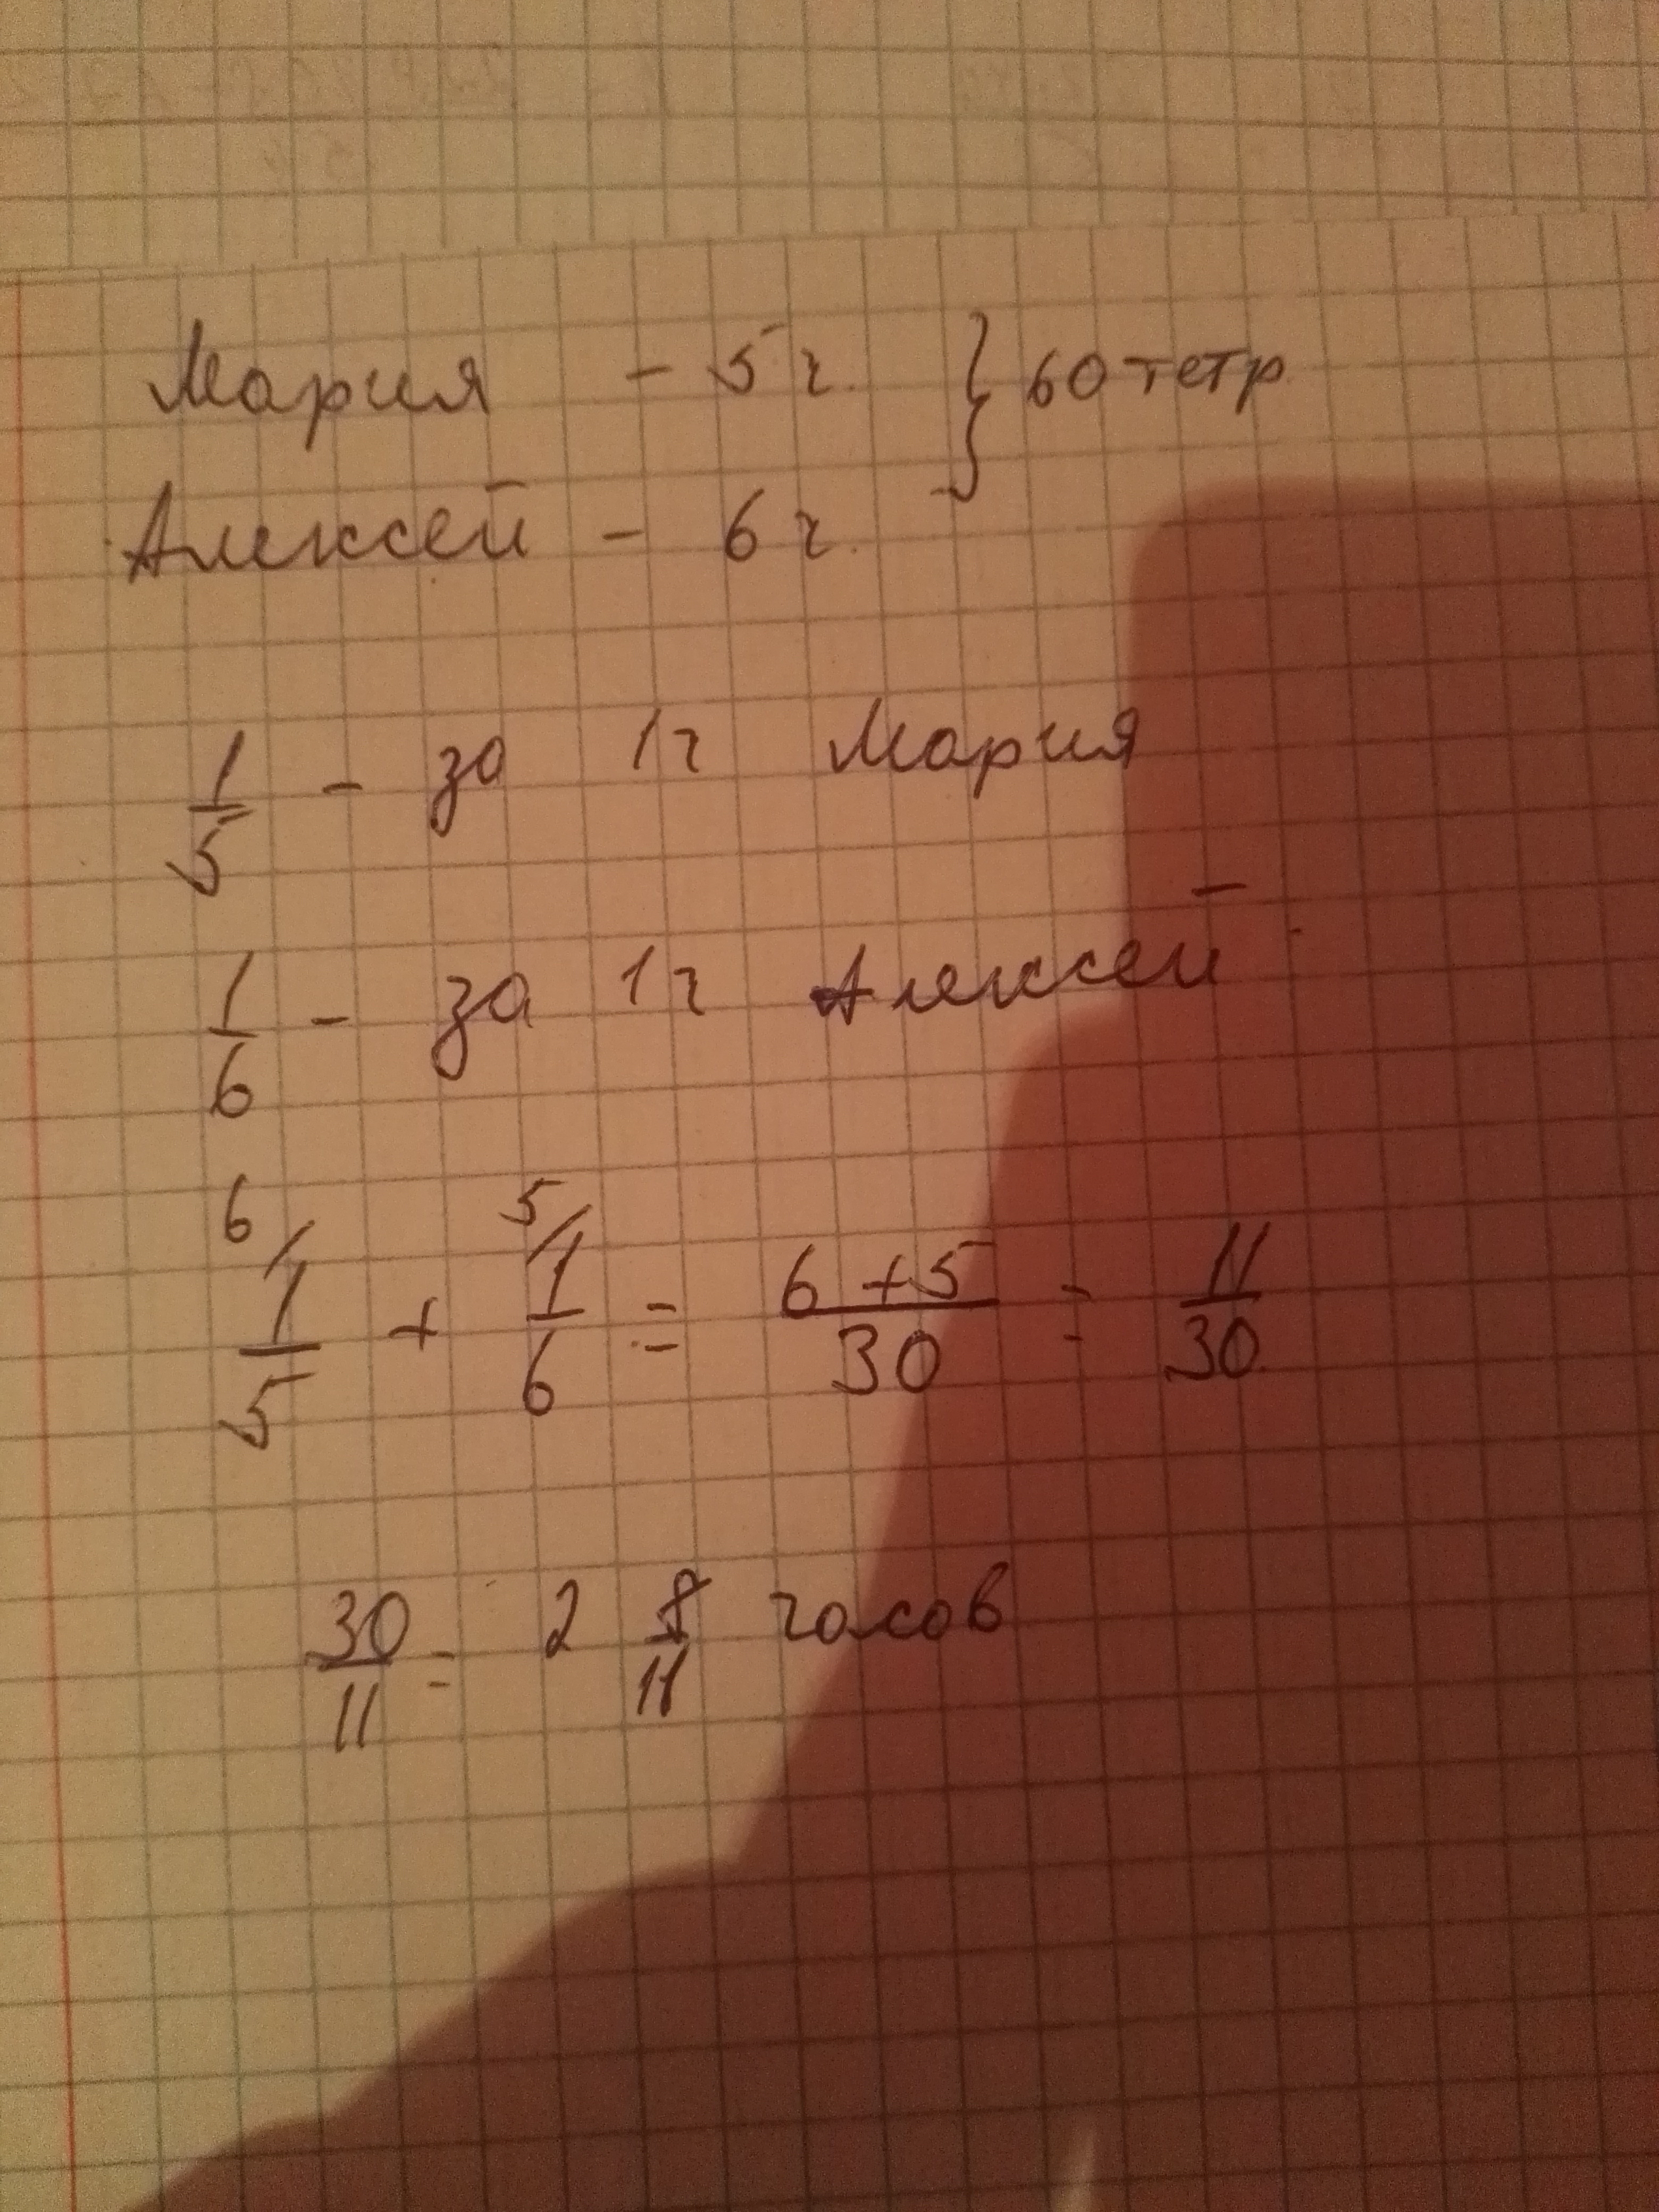 Мария - 5 ч. } 60 тетр.
Алексей - 6 ч.
1/5 - за 1ч Мария
1/6 - за 1ч Алексей
6/ 1/5 + 5/ 1/6 = 6+5/30 = 11/30
30/11 = 2 8/11 часов